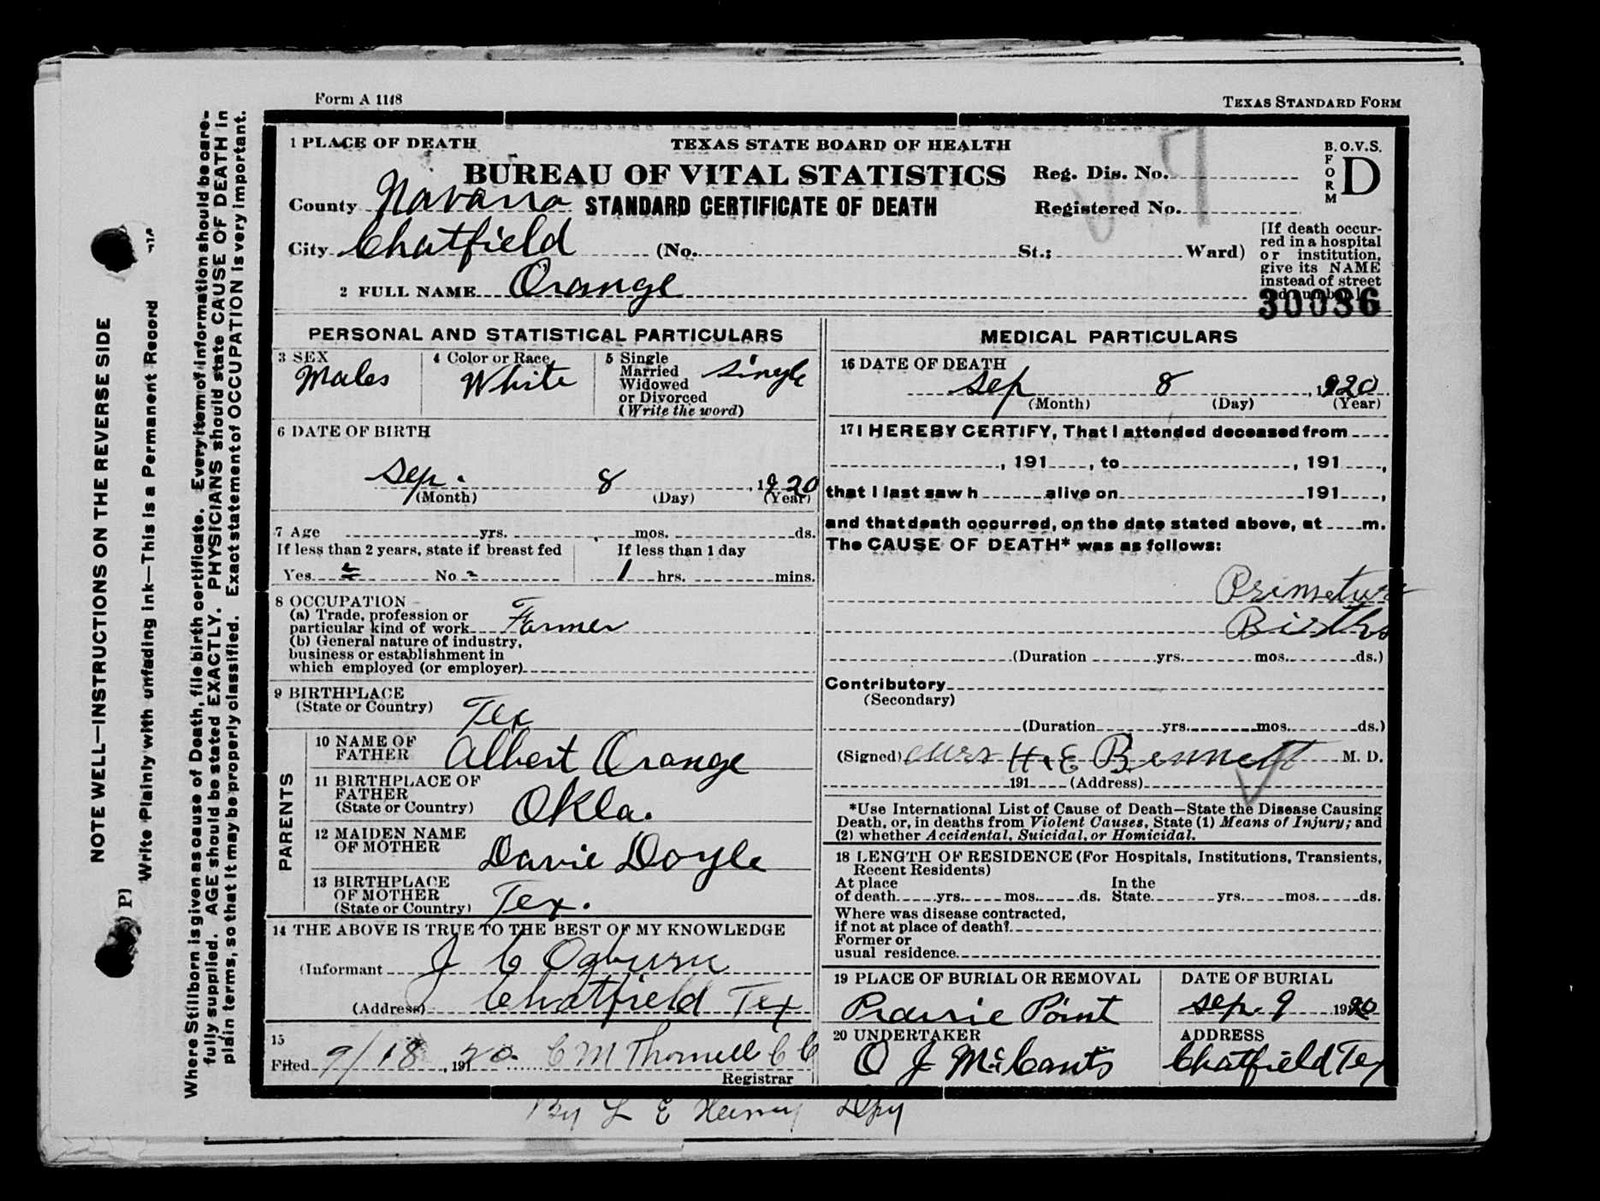 Form A 1118
TEXAS STANDARD FORM
1 PLACE OF DEATH
TEXAS STATE BOARD OF HEALTH
B.O.V.S.
FORM D
BUREAU OF VITAL STATISTICS
Reg. Dis. No.
County Navarro STANDARD CERTIFICATE OF DEATH
Registered No.
City Chatfield (No. St.; Ward)
[If death occur-
red in a hospital
or institution,
give its NAME
instead of street
2 FULL NAME Orange
30036
PERSONAL AND STATISTICAL PARTICULARS
3 SEX
Males
4 Color or Race
White
5 Single
Married
Widowed
or Divorced
(Write the word)
single
6 DATE OF BIRTH
Sep. 8, 1920
(Month) (Day) (Year)
7 Age yrs. mos. ds.
If less than 2 years, state if breast fed
Yes No
If less than 1 day
1 hrs. mins.
8 OCCUPATION
(a) Trade, profession or
particular kind of work Farmer
(b) General nature of industry,
business or establishment in
which employed (or employer)
9 BIRTHPLACE
(State or Country) Tex
PARENTS
10 NAME OF
FATHER Albert Orange
11 BIRTHPLACE OF
FATHER
(State or Country) Okla.
12 MAIDEN NAME
OF MOTHER Davie Doyle
13 BIRTHPLACE
OF MOTHER
(State or Country) Tex.
14 THE ABOVE IS TRUE TO THE BEST OF MY KNOWLEDGE
(Informant J C Ogburn
(Address) Chatfield Tex
15
Filed 9/18, 1920 C M Thornell C C
Registrar
By L E Dpy
MEDICAL PARTICULARS
16 DATE OF DEATH
Sep 8, 1920
(Month) (Day) (Year)
17 I HEREBY CERTIFY, That I attended deceased from
, 191 , to , 191 ,
that I last saw h alive on 191 ,
and that death occurred, on the date stated above, at m.
The CAUSE OF DEATH* was as follows:
Primature
Births
(Duration yrs. mos. ds.)
Contributory
(Secondary)
(Duration yrs. mos. ds.)
(Signed) Mrs H. E Bennett M. D.
191 (Address)
*Use International List of Cause of Death—State the Disease Causing
Death, or, in deaths from Violent Causes, State (1) Means of Injury; and
(2) whether Accidental, Suicidal, or Homicidal.
18 LENGTH OF RESIDENCE (For Hospitals, Institutions, Transients,
Recent Residents)
At place
of death yrs. mos. ds.
In the
State yrs. mos. ds.
Where was disease contracted,
if not at place of death?
Former or
usual residence
19 PLACE OF BURIAL OR REMOVAL
Prairie Point
DATE OF BURIAL
Sep. 9 1920
20 UNDERTAKER
O J McCants
ADDRESS
Chatfield Tex
NOTE WELL—INSTRUCTIONS ON THE REVERSE SIDE
P] Write Plainly with unfading ink—This is a Permanent Record
Where Stillborn is given as cause of Death, file birth certificate. Every item of information should be care-
fully supplied. AGE should be stated EXACTLY. PHYSICIANS should state CAUSE OF DEATH in
plain terms, so that it may be properly classified. Exact statement of OCCUPATION is very important.